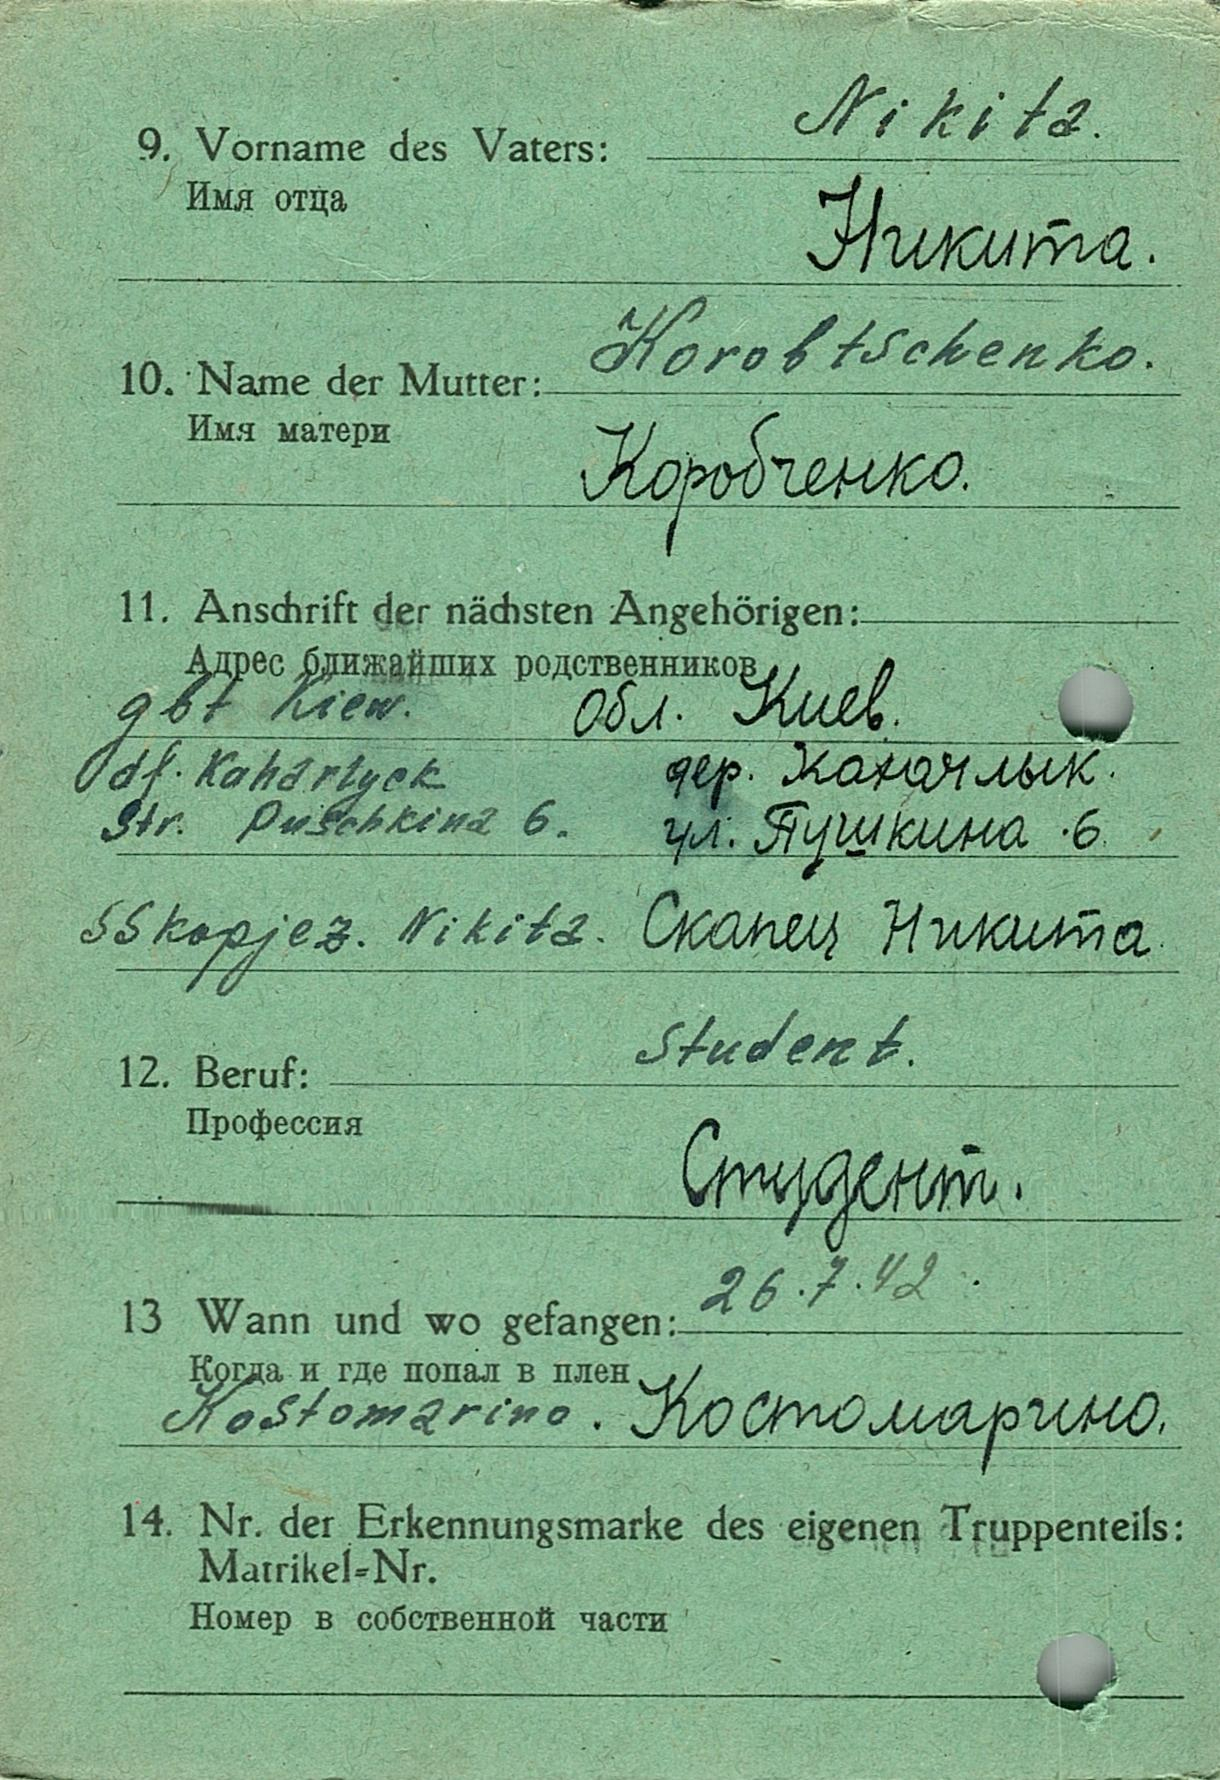 Nikita.
9. Vorname des Vaters:
Имя отца
Никита.
Korobtschenko.
10. Name der Mutter:
Имя матери
Коробченко.
11. Anschrift der nächsten Angehörigen:
Адрес ближайших родственников
gbt Kiew. Обл. Киев.
df. Kaharlyck дер.
Str. Puschkina 6. ул. Пушкина 6.
SSkopjez. Nikita. Скапец Никита
Student.
12. Beruf:
Профессия
Студент.
26.7.42
13 Wann und wo gefangen:
Когда и где попал в плен
Kostomarino. Костомарино.
14. Nr. der Erkennungsmarke des eigenen Truppenteils:
Matrikel=Nr.
Номер в собственной части